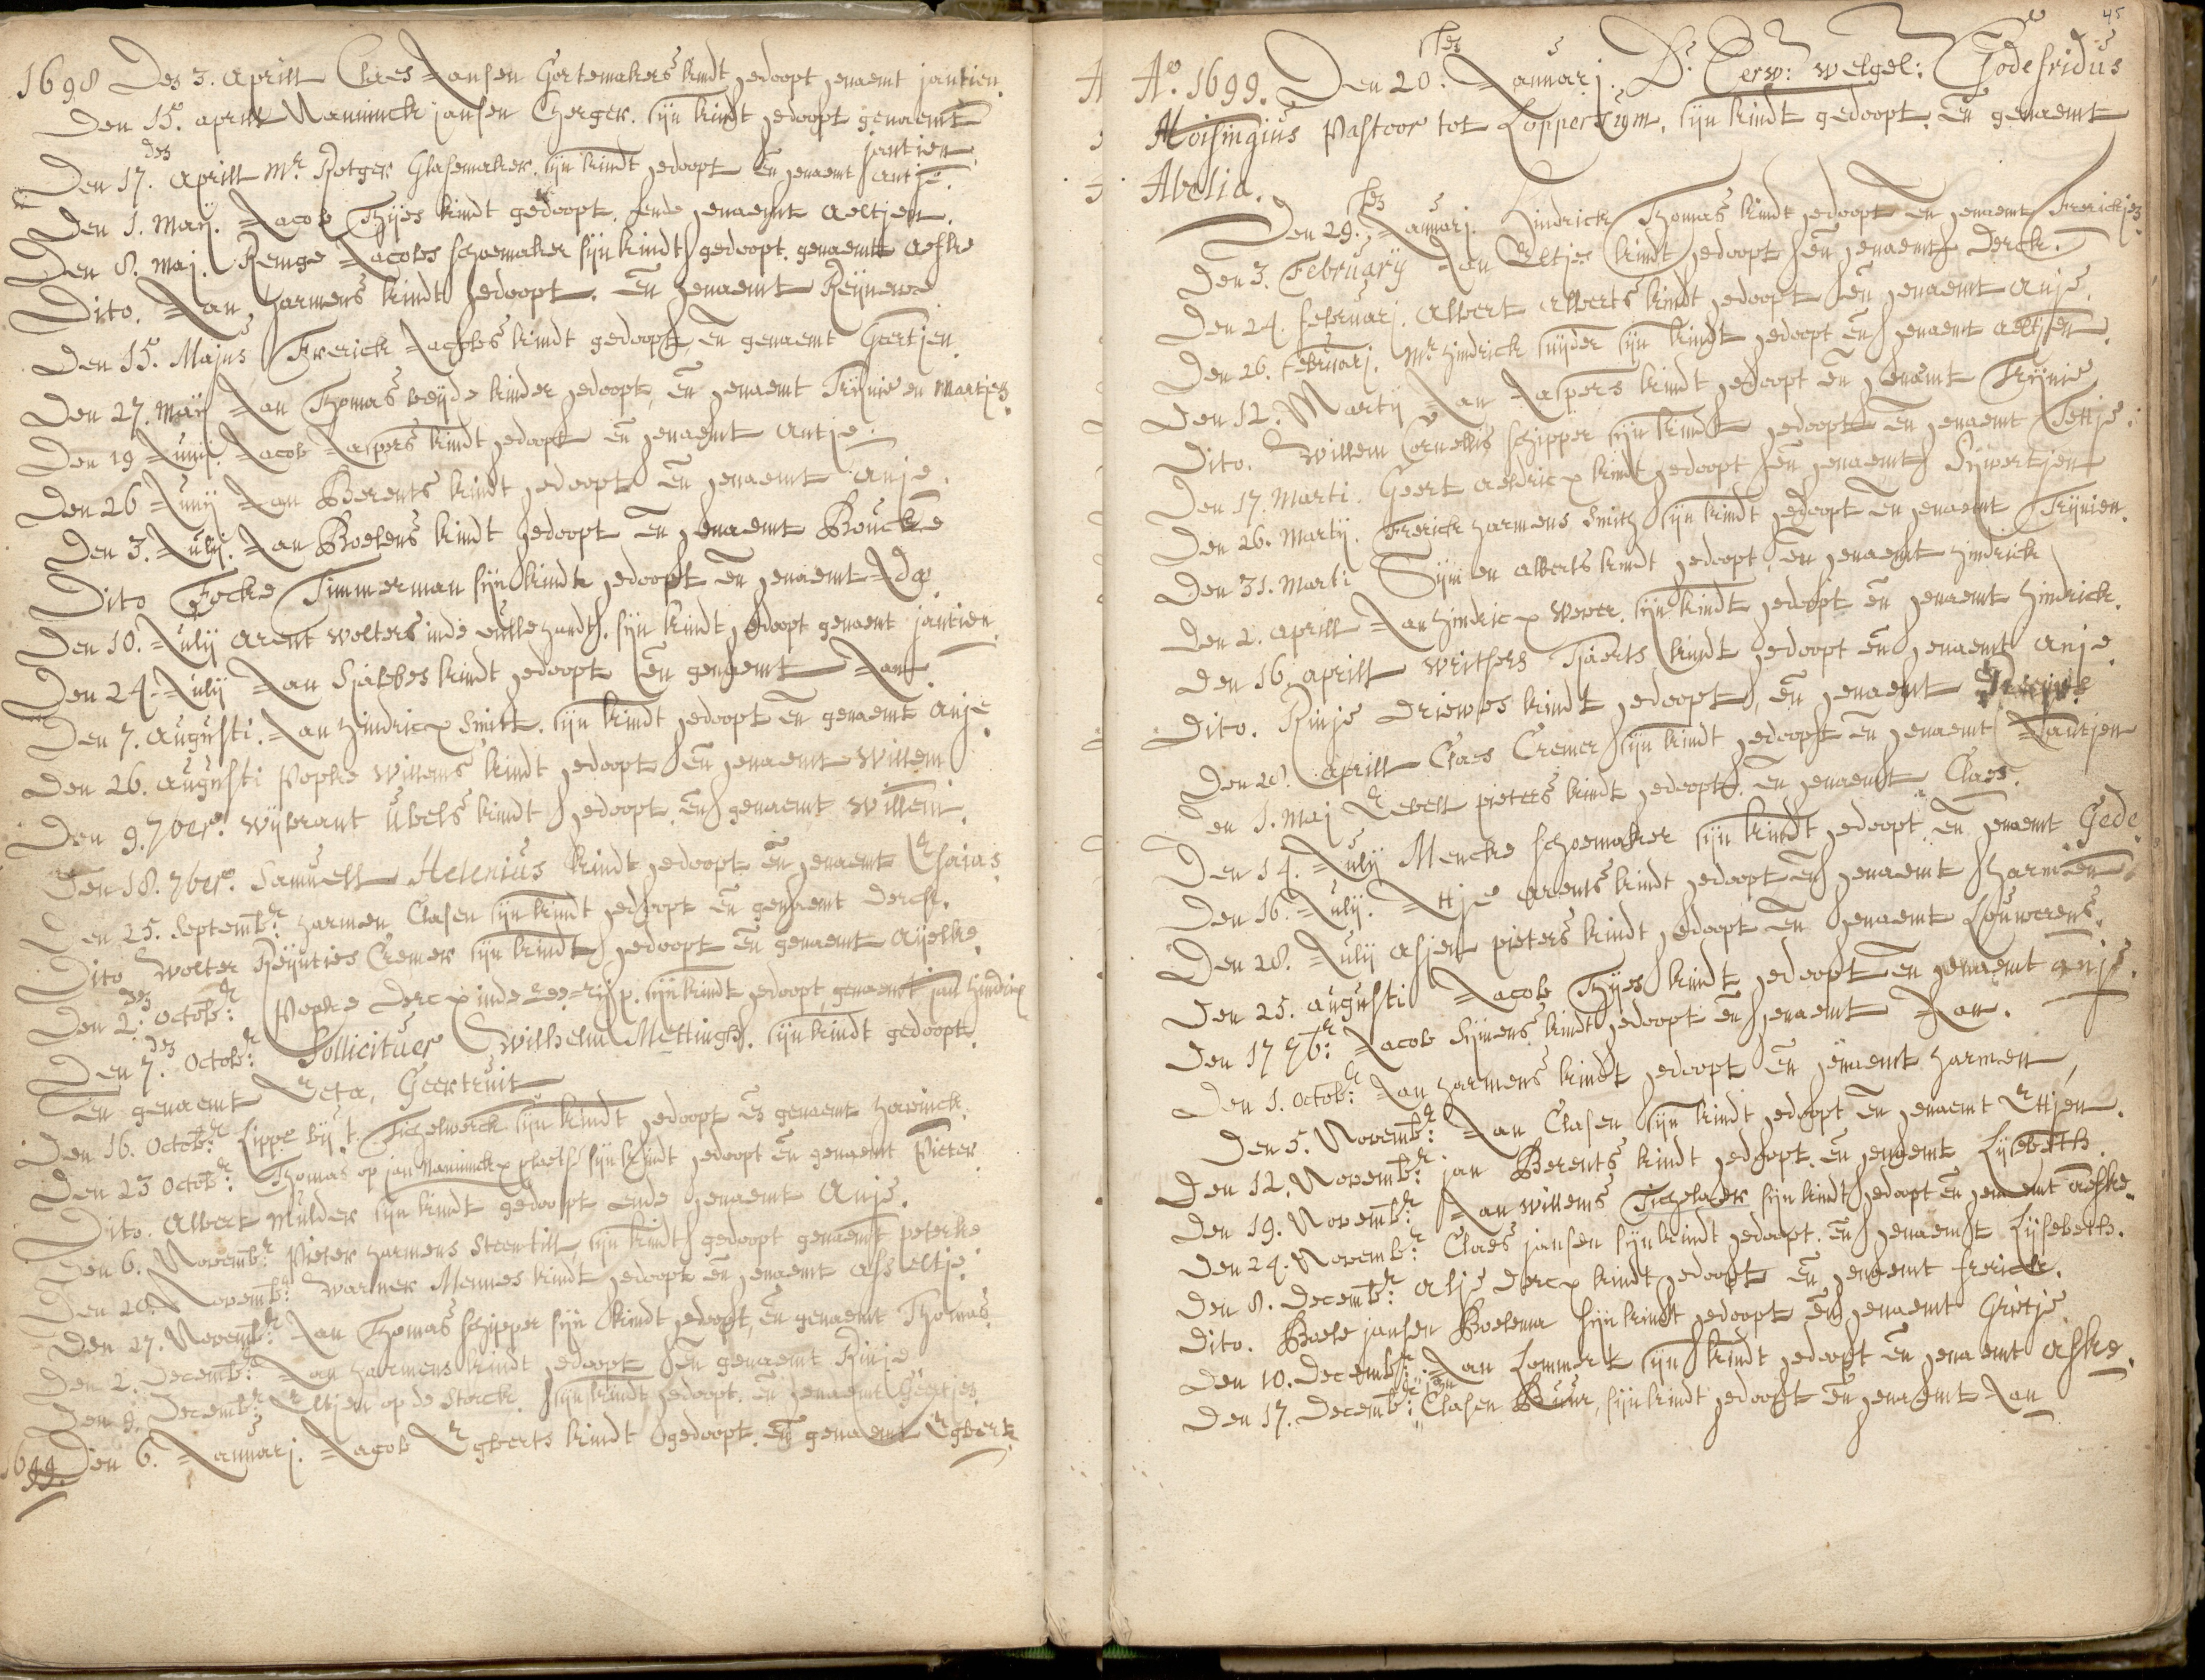 1698 Den 3. Aprill Claes Jansen Gortemakers kindt gedoopt genaemt jantien.
Den 15. aprill Nanninck jansen Cherger. sijn kindt gedoopt genaemt
jantien
Den 17. den Aprill Mr. Rotger Glasemaker. sijn kindt gedoopt en genaemt antje.
Den 1. Maij. Jacob Thijes kindt gedoopt. ende genaemt Aeltjen.
Den 8. Maj. Remge Jacobs schoemaker sijn kindt gedoopt. genaemt Aefke
Dito. Jan Harmens kindt gedoopt. en genaemt Reijnewe
Den 15. Majus Frerick Jacobs kindt gedoopt, en genaemt Geertjen.
Den 27. Maij Jan Thomas beijde kinder gedoopt, en genaemt Trijnie en Martjen.
Den 19 Junij. Jacob Jaspers kindt gedoopt en genaemt Antje.
Den 26 Junij Jan Berents kindt gedoopt en genaemt Anje.
Den 3. Julij. Jan Boelens kindt gedoopt en genaemt Boucke
Dito Focke Timmerman sijn kindt gedoopt en genaemt Ida.
Den 10. Julij Arent Wolters inde gulle handt. sijn kindt gedoopt genaemt jantien
Den 24. Julij Jan Sjabbes kindt gedoopt en genaemt Jan.
Den 7. Augusti. Jan Hindricx Smitt. sijn kindt gedoopt en genaemt Anje.
Den 26. Augusti Popke Willems kindt gedoopt en genaemt Willem
Den 9. 7bers. Wijbrant Ubels kindt gedoopt. en genaemt Willem.
Den 18. 7bers. Samuell Helenius kindt gedoopt en genaemt Esaias.
Den 25. Septembr: Harmen Clasen sijn kindt gedoopt en genaemt Derck.
Dito Wolter Reijnties Cremer sijn kindt gedoopt en genaemt Aijelke.
Den 2. den Octobr: Popke Dercx inde sijn kindt gedoopt genaemt jan Hindrix
Den 7. den Octobr: Sollicituer Wilhelm Mettingh. sijn kindt gedoopt.
en genaemt Reta, Geertruit
Den 16. Octobr: Lippe bij 't Tichelwerck sijn kindt gedoopt en genaemt Harminck.
Den 23 Octobr: Thomas op jan Nanninckx plaets sijn kindt gedoopt en genaemt Pieter
Dito. Albert Mulder sijn kindt gedoopt ende genaemt Anje.
Den 6. Novembr Pieter Harmens Steentill, sijn kindt gedoopt genaemt peterke
Den 20. Novembr: Warmer Mennes kindt gedoopt en genaemt Asseltje.
Den 27. Novembr: Jan Thomas schipper sijn kindt gedoopt, en genaemt Thomas.
Den 2. Decembr: Jan Harmens kindt gedoopt en genaemt Rinje
Den 9. Decembr Eltjen op de Storck. sijn kindt gedoopt. en genaemt Geertjen
1699. Den 6. Januarj. Jacob Egberts kindt gedoopt. en genaemt Egbert.
45
Ao. 1699. Den 20. sten Januarj. Ds. Eerw: Welgel: Godefridus
Moisingius Pastoor tot Loppersum. sijn kindt gedoopt. en genaemt
Abelia.
Den 29. sten Januarj. Hindrick Thomas kindt gedoopt en genaemt Frerickjen.
Den 3. February Jan Eltjes kindt gedoopt en genaemt Derck.
Den 24. Februarj. Albert Alberts kindt gedoopt en genaemt Anje.
Den 26. Februarj. Mr. Hindrick Snijder sijn kindt gedoopt en genaemt Aeltjen.
Den 12. Martij Jan Jaspers kindt gedoopt en genaemt Trijnie
Dito. Willem Cornellis schipper sijn kindt gedoopt en genaemt Tettje.
Den 17. Marti. Geert Aeldricx kindt gedoopt en genaemt Sijwertjen
Den 26. Martij. Frerick Harmens Smith sijn kindt gedoopt en genaemt Trijnien.
Den 31. Marti Sijmen Alberts kindt gedoopt, en genaemt Hindrick
Den 2. Aprill Jan Hindricx Wever. sijn kindt gedoopt en genaemt Hindrick.
Den 16. Aprill Writsers Tjaerts kindt gedoopt en genaemt Anje.
Dito. Rinje Driewes kindt gedoopt, en genaemt
Den 28. Aprill Claes Cremer sijn kindt gedoopt en genaemt Jantjen
Den 1. Maj Eebell pieters kindt gedoopt. en genaemt Claes.
Den 14. Julij Mencke schoemaker sijn kindt gedoopt. en genaemt Gede.
Den 16. Julij. Attje Arents kindt gedoopt en genaemt Harmen.
Den 28. Julij Asjen pieters kindt gedoopt en genaemt Louwerens.
Den 25. Augusti Jacob Thijes kindt gedoopt en genaemt Anje.
Den 17 7br: Jacob Sijmens kindt gedoopt en genaemt Jan.
Den 1. Octobr: Jan Harmens kindt gedoopt en genaemt Harmen
Den 5. Novembr: Jan Clasen sijn kindt gedoopt en genaemt Ettjen.
Den 12. Novembr: jan Berents kindt gedoopt. en genaemt Lijsebeth.
Den 19. Novembr: Jan Willems Tichelaer sijn kindt gedoopt en genaemt Aefke.
Den 24. Novembr: Claes jansen sijn kindt gedoopt. en genaemt Lijsebeth.
Den 8. Decembr: Alje Dercx kindt gedoopt en genaemt Frerick.
Dito. Boele jansen Boelema sijn kindt gedoopt en genaemt Grietje.
Den 10. Decembr: Jan Lommert sijn kindt gedoopt en genaemt Aefke.
Den 17. Decembr: jan Clasen Buur, sijn kindt gedoopt en genaemt Jan